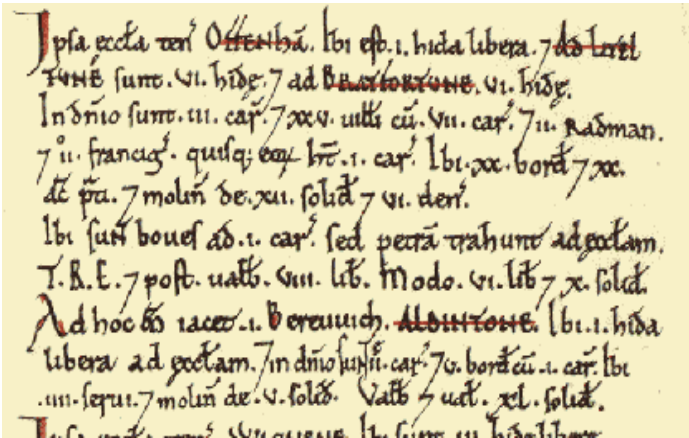 Ipsa eccła ten̄ OFFENHĀ. Ibi est .i. hida libera. ⁊ Ad LITEL
TUNE sunt .VI. hidę. ⁊ ad BRATFORTUNE .VI. hidę.
In dn̄io sunt .III. car̄. ⁊ XXV. uiłłi cū .VII. car̄. ⁊ II. Radman.
⁊ II. franciḡ. quisq; eoꝝ hт̄ .I. car̄. Ibi .XX. bord̄ ⁊ XX.
ac̄ p̄ti. ⁊ molin̄ de .XII. solid̄ ⁊ VI. den̄.
Ibi sun̄ boues ad .I. car̄. sed petrā trahunt ad eccłam.
T.R.E. ⁊ post. ualb̄ .VIII. lib̄. Modo .VI. lib̄ ⁊ X. solid̄.
Ad hoc m̄ iacet .I. Bereuuich. ALDINTONE. Ibi .I. hida
libera ad eccłam. ⁊ in dn̄io sun̄ II. car̄. ⁊ V. bord̄ cū .I. car̄. Ibi
.IIII. serui. ⁊ molin̄ de .V. solid̄. Valb̄ ⁊ uał. XL. solid̄.
Ipsa eccła ten̄ Ibi sunt .III. hidę liberę.